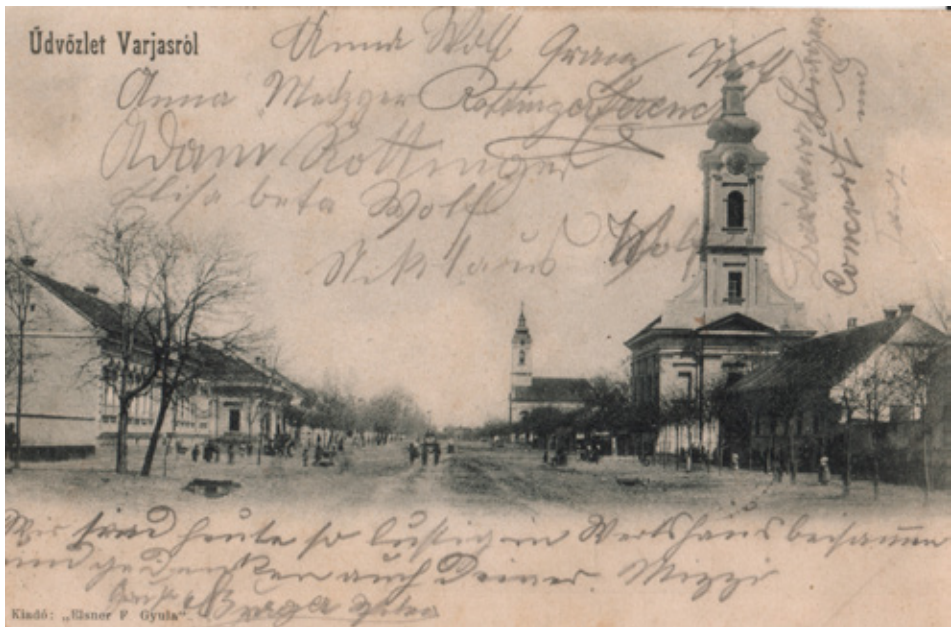 Üdvözlet Varjasról
Anna Wolf Franz Wolf
Anna Metzger Rottinger Ferenc
Adam Rottinger
Elisabeta Wolf
Niklaus Wolf
Concert
Wir sind heute so lustig im Wirtshaus beisamen
und gedenken auch Deiner Mizzi
Kiadó: „Elsner F. Gyula"